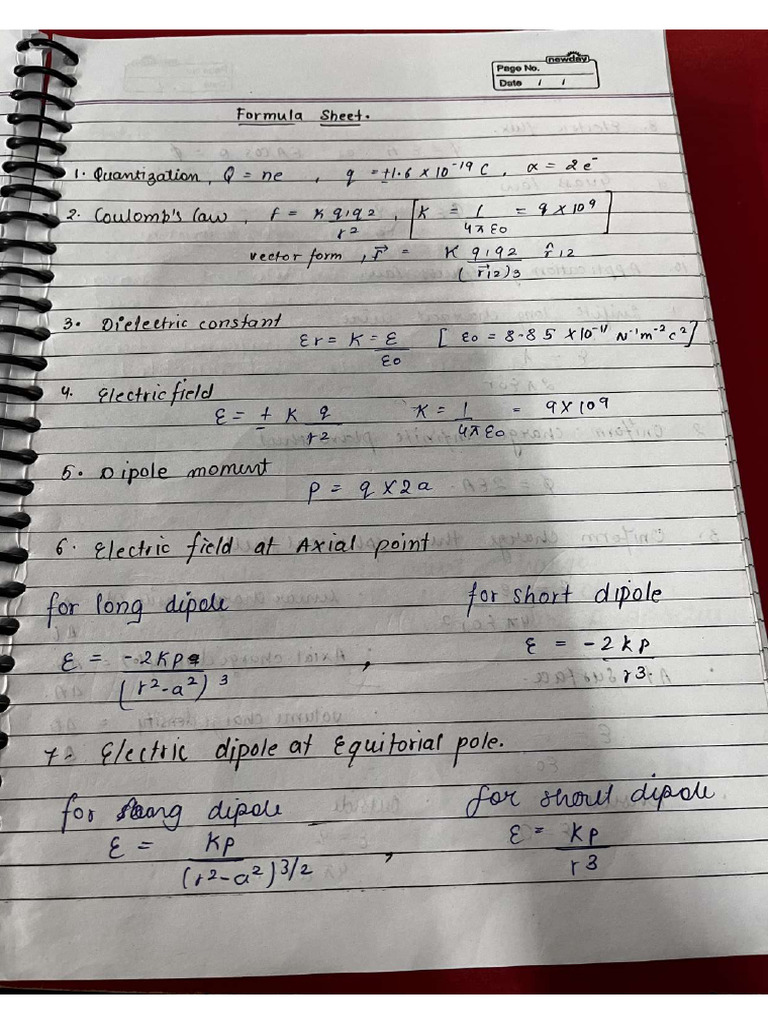 newday
Page No.
Date / /
Formula Sheet.
1. Quantization, Q = ne , q = ±1.6 × 10⁻¹⁹ C , α = 2e⁻
2. Coulomp's law , F = K q1q2 / r² , [K = 1 / 4πε0 = 9 × 10⁹]
vector form , r⃗ = K q1q2 / (r⃗12)3 r̂12
3. Dielectric constant
εr = K = ε / ε0 [ε0 = 8.85 × 10⁻¹¹ N⁻¹m⁻²c²]
4. Electric field
ε = ± K q / r2 K = 1 / 4πε0 = 9 × 109
5. Dipole moment
P = q × 2a
6. Electric field at Axial point
for long dipole for short dipole
ε = -2KP / (r²-a²)³ , ε = -2kp / r3
7. Electric dipole at Equitorial pole.
for long dipole for short dipole
ε = kp / (r²-a²)3/2 , ε = kp / r3